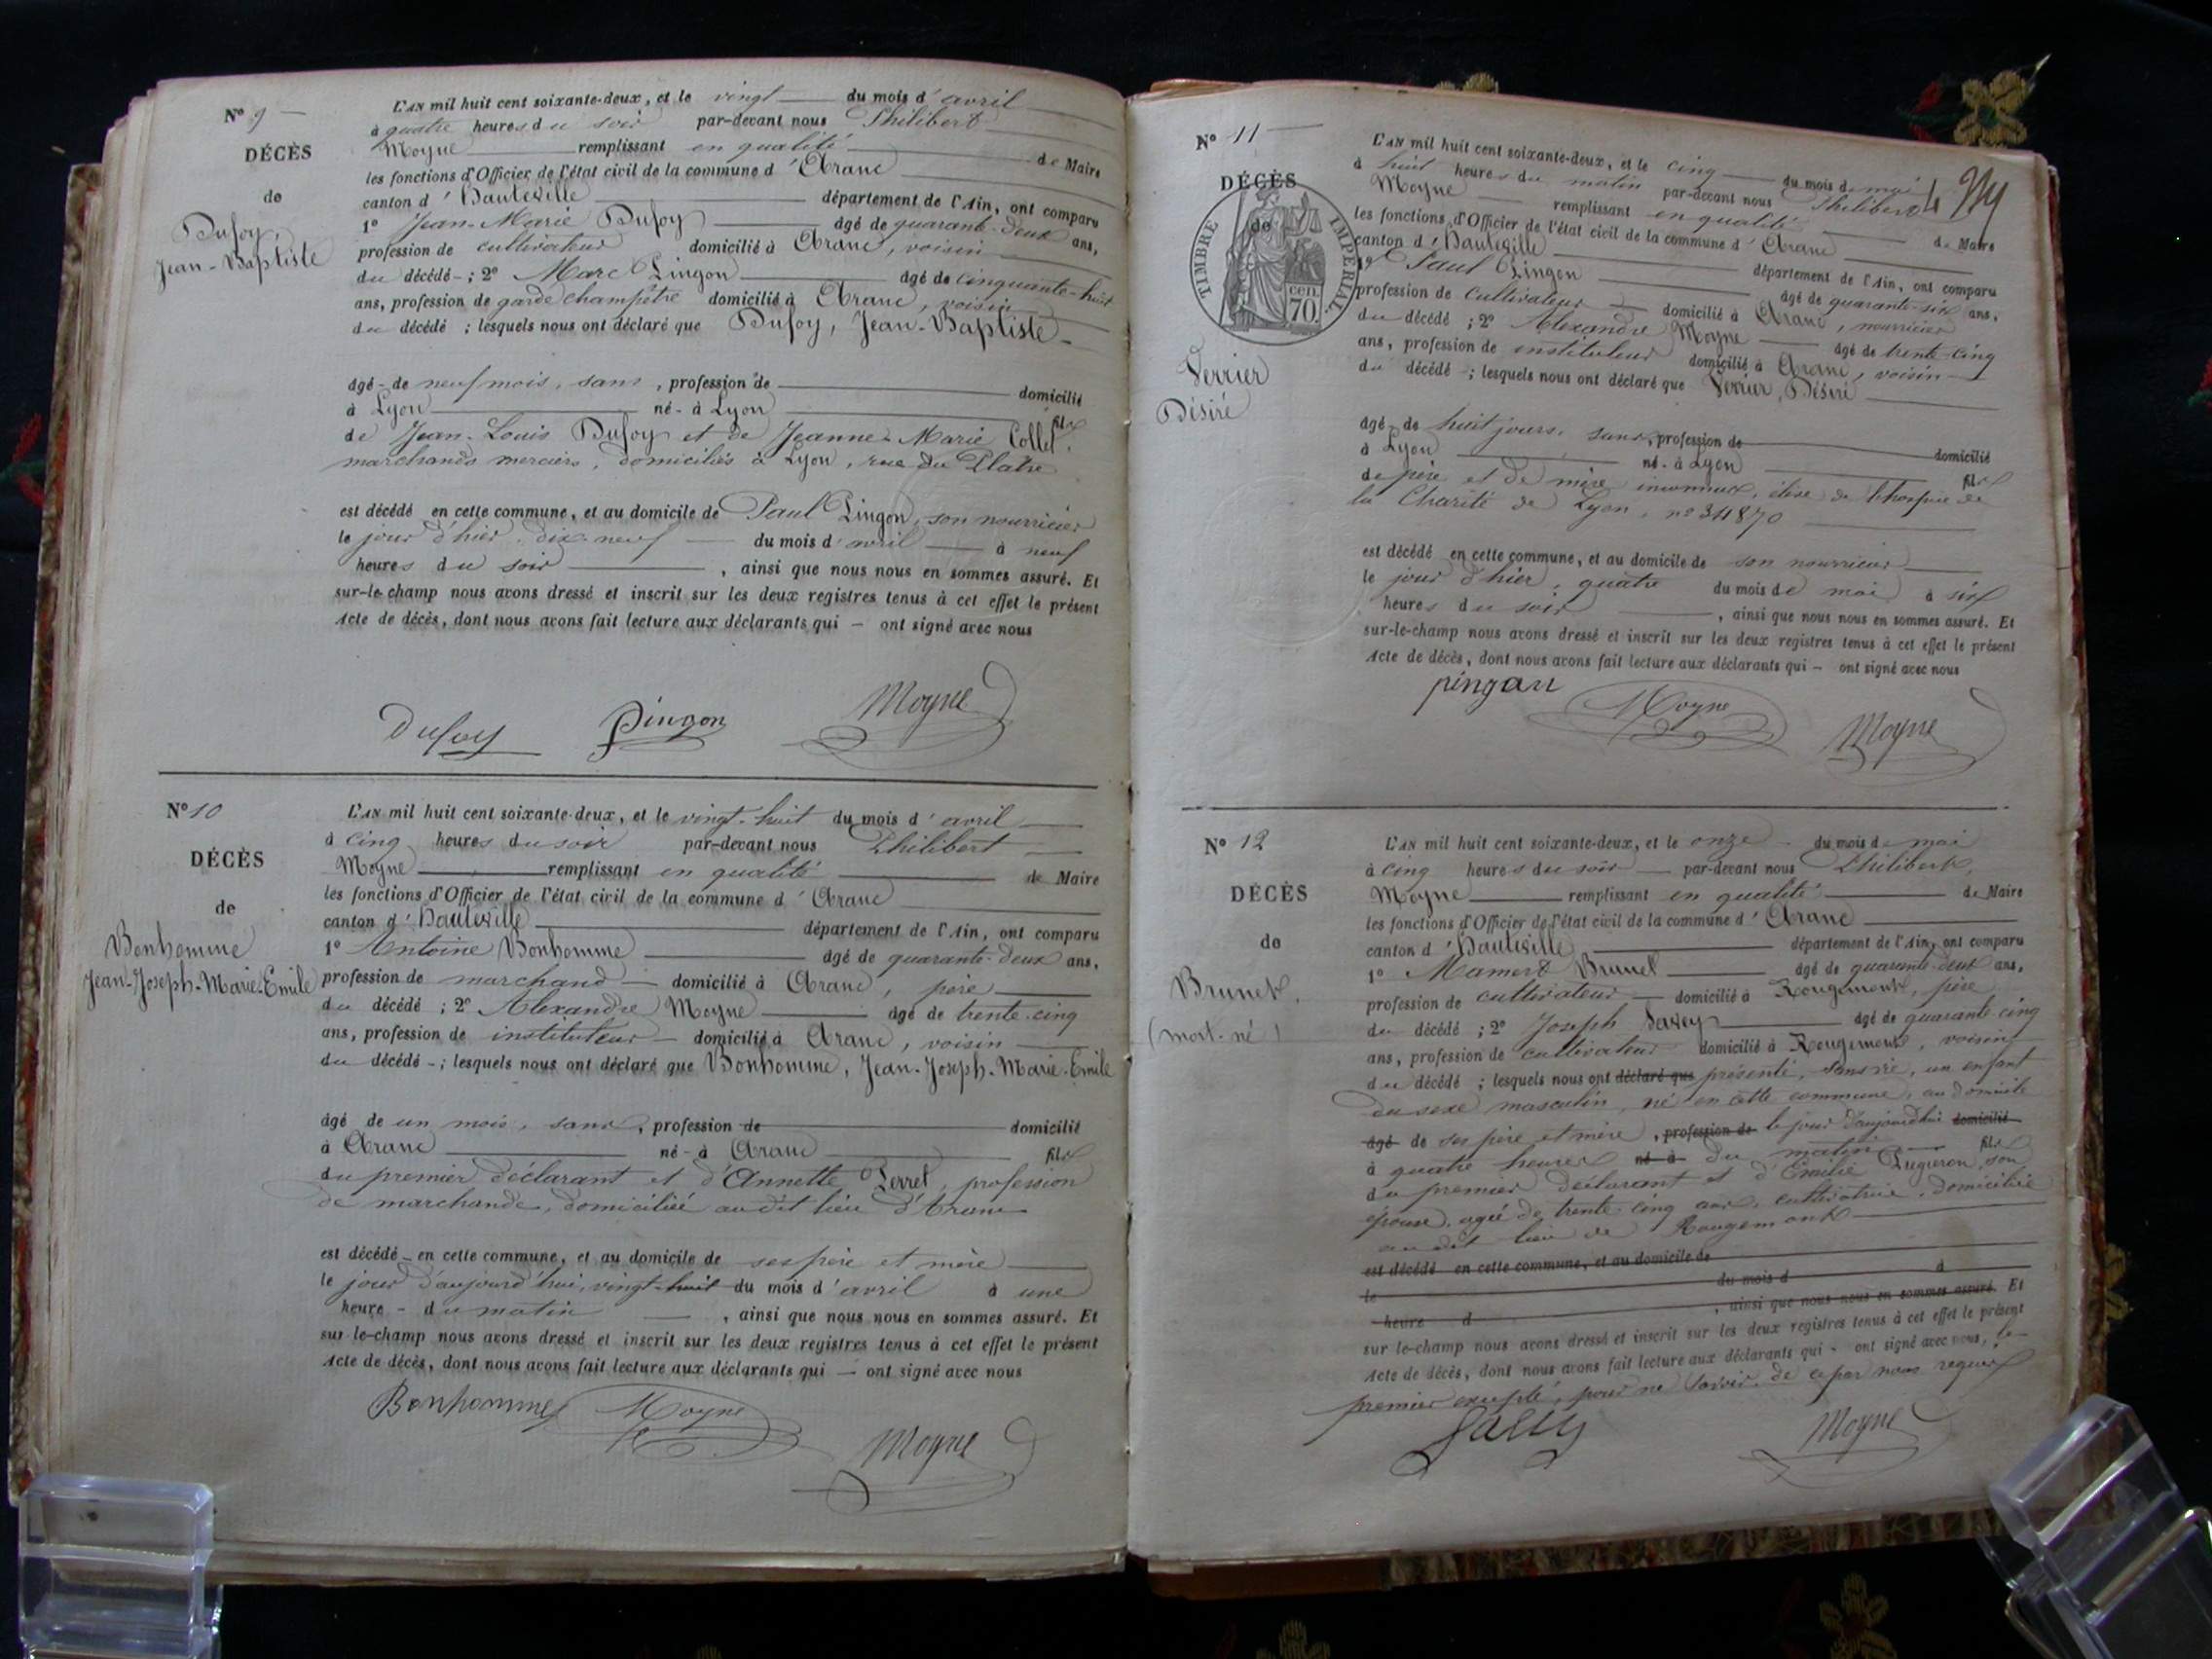 N° 9
DÉCÈS
de
Dufoy,
Jean-Baptiste
L'AN mil huit cent soixante-deux, et le vingt du mois d'avril
à quatre heures du soir par-devant nous Philibert
Moyne remplissant en qualité de Maire
les fonctions d'Officier de l'état civil de la commune d'Aranc
canton d'Hauteville département de l'Ain, ont comparu
1° Jean-Marie Dufoy âgé de quarante-deux ans,
profession de cultivateur domicilié à Aranc, voisin
du décédé ; 2° Marc Pingon âgé de cinquante-huit
ans, profession de garde champêtre domicilié à Aranc, voisin
du décédé ; lesquels nous ont déclaré que Dufoy, Jean-Baptiste
âgé de neuf mois, sans, profession de domicilié
à Lyon né à Lyon fils
de Jean-Louis Dufoy et de Jeanne-Marie Collet,
marchands merciers, domiciliés à Lyon, rue du Plâtre
est décédé en cette commune, et au domicile de Paul Pingon, son nourricier
le jour d'hier, dix-neuf du mois d'avril à neuf
heures du soir, ainsi que nous nous en sommes assuré. Et
sur-le-champ nous avons dressé et inscrit sur les deux registres tenus à cet effet le présent
Acte de décès, dont nous avons fait lecture aux déclarants qui ont signé avec nous
Dufoy Pingon Moyne
N° 10
DÉCÈS
de
Bonhomme
Jean-Joseph-Marie-Emile
L'AN mil huit cent soixante-deux, et le vingt-huit du mois d'avril
à cinq heures du soir par-devant nous Philibert
Moyne remplissant en qualité de Maire
les fonctions d'Officier de l'état civil de la commune d'Aranc
canton d'Hauteville département de l'Ain, ont comparu
1° Antoine Bonhomme âgé de quarante-deux ans,
profession de marchand domicilié à Aranc, père
du décédé ; 2° Alexandre Moyne âgé de trente-cinq
ans, profession de instituteur domicilié à Aranc, voisin
du décédé ; lesquels nous ont déclaré que Bonhomme, Jean-Joseph-Marie-Emile
âgé de un mois, sans, profession de domicilié
à Aranc né à Aranc fils
du premier déclarant et d'Annette Perret, profession
de marchande, domiciliée au dit lieu d'Aranc
est décédé en cette commune, et au domicile de ses père et mère
le jour d'aujourd'hui, vingt-huit du mois d'avril à une
heure du matin, ainsi que nous nous en sommes assuré. Et
sur-le-champ nous avons dressé et inscrit sur les deux registres tenus à cet effet le présent
Acte de décès, dont nous avons fait lecture aux déclarants qui ont signé avec nous
Bonhomme Moyne Moyne
N° 11
DÉCÈS
de
TIMBRE IMPÉRIAL
cen.
70.
Verrier
Désiré
L'AN mil huit cent soixante-deux, et le cinq du mois de mai
à huit heures du matin par-devant nous Philibert
Moyne remplissant en qualité de Maire
les fonctions d'Officier de l'état civil de la commune d'Aranc
canton d'Hauteville département de l'Ain, ont comparu
1° Paul Pingon âgé de quarante-six ans,
profession de cultivateur domicilié à Aranc, nourricier
du décédé ; 2° Alexandre Moyne âgé de trente-cinq
ans, profession de instituteur domicilié à Aranc, voisin
du décédé ; lesquels nous ont déclaré que Verrier, Désiré
âgé de huit jours, sans, profession de domicilié
à Lyon né à Lyon fils
de père et de mère inconnus, élève de l'hospice de
la Charité de Lyon, n° 311870
est décédé en cette commune, et au domicile de son nourricier
le jour d'hier, quatre du mois de mai à six
heures du soir, ainsi que nous nous en sommes assuré. Et
sur-le-champ nous avons dressé et inscrit sur les deux registres tenus à cet effet le présent
Acte de décès, dont nous avons fait lecture aux déclarants qui ont signé avec nous
pingon Moyne Moyne
N° 12
DÉCÈS
de
Brunet,
(mort-né)
L'AN mil huit cent soixante-deux, et le onze du mois de mai
à cinq heures du soir par-devant nous Philibert
Moyne remplissant en qualité de Maire
les fonctions d'Officier de l'état civil de la commune d'Aranc
canton d'Hauteville département de l'Ain, ont comparu
1° Mamert Brunet âgé de quarante-deux ans,
profession de cultivateur domicilié à Rougemont, père
du décédé ; 2° Joseph Savey âgé de quarante-cinq
ans, profession de cultivateur domicilié à Rougemont, voisin
du décédé ; lesquels nous ont déclaré que présenté, sans vie, un enfant
du sexe masculin, né en cette commune, au domicile
âgé de ses père et mère, profession de le jour d'aujourd'hui domicilié
à quatre heures né à du matin fils
du premier déclarant et d'Emélie Pugieron, son
épouse, agée de trente-cinq ans, cultivatrice, domiciliée
au dit lieu de Rougemont
est décédé en cette commune, et au domicile de
le du mois d à
heure d, ainsi que nous nous en sommes assuré. Et
sur-le-champ nous avons dressé et inscrit sur les deux registres tenus à cet effet le présent
Acte de décès, dont nous avons fait lecture aux déclarants qui ont signé avec nous, le
premier excepté, pour ne savoir, de ce par nous requis
Savey Moyne